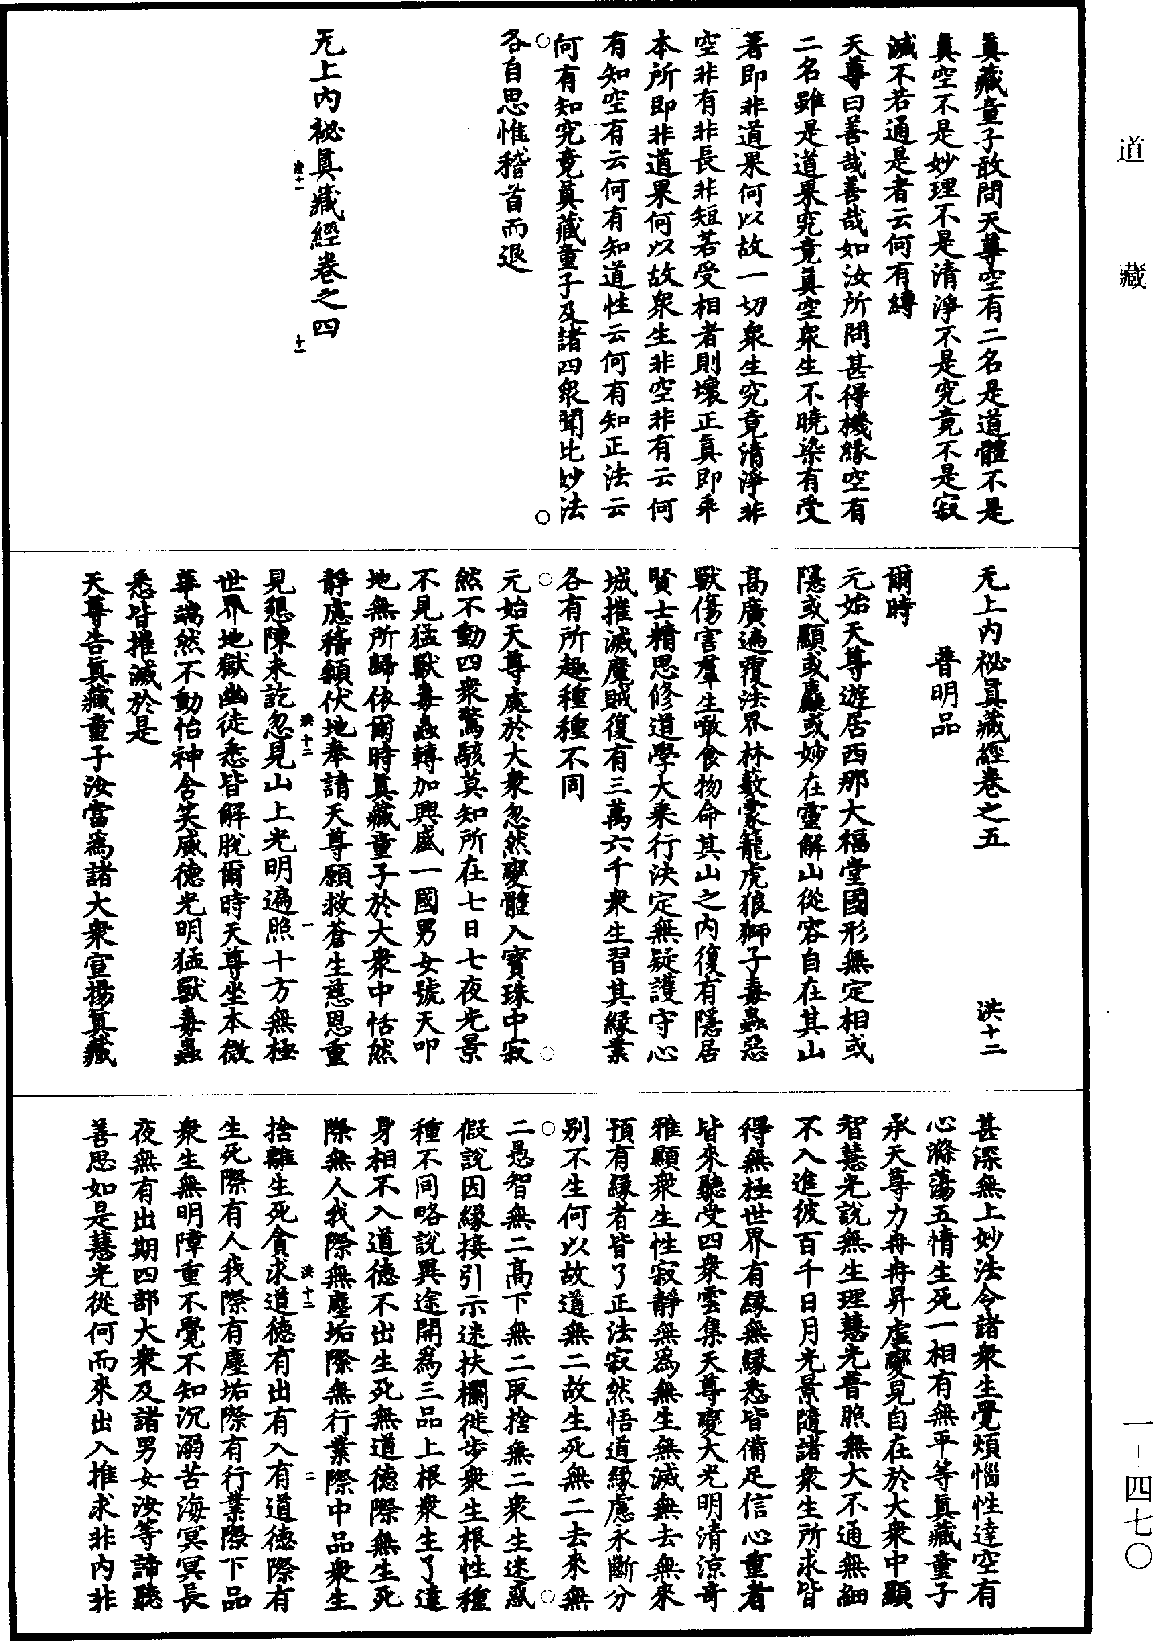 道藏
一－四七〇
眞藏童子敢問天尊空有二名是道體不是
眞空不是妙理不是清淨不是究竟不是寂
滅不若通是者云何有縛
天尊曰善哉善哉如汝所問甚得機緣空有
二名雖是道果究竟眞空衆生不曉染有受
著即非道果何以故一切衆生究竟清淨非
空非有非長非短若受相者則壞正眞即乖
本所即非道果何以故衆生非空非有云何
有知空有云何有知道性云何有知正法云
何有知究竟眞藏童子及諸四衆聞此妙法
各自思惟稽首而退
无上內祕眞藏經卷之四
无上內祕眞藏經卷之五 洪十二
普明品
爾時
元始天尊遊居西那大福堂國形無定相或
隱或顯或麤或妙在靈解山從容自在其山
高廣遍覆法界林藪蒙籠虎狼獅子毒蟲惡
獸傷害羣生噉食物命其山之內復有隱居
賢士精思修道學大乘行決定無疑護守心
城摧滅魔賊復有三萬六千衆生習其緣業
各有所趣種種不同
元始天尊處於大衆忽然變體入寶珠中寂
然不動四衆驚駭莫知所在七日七夜光景
不見猛獸毒蟲轉加興盛一國男女號天叩
地無所歸依爾時眞藏童子於大衆中恬然
靜慮稽顙伏地奉請天尊願救蒼生慈恩重
洪十二 一
見懇陳未訖忽見山上光明遍照十方無極
世界地獄幽徒悉皆解脫爾時天尊坐本微
華端然不動怡神含笑威德光明猛獸毒蟲
悉皆摧滅於是
天尊告眞藏童子汝當爲諸大衆宣揚眞藏
甚深無上妙法令諸衆生覺煩惱性達空有
心滌蕩五情生死一相有無平等眞藏童子
承天尊力冉冉昇虛變見自在於大衆中顯
智慧光說無生理慧光普照無大不通無細
不入進彼百千日月光景隨諸衆生所求皆
得無極世界有緣無緣悉皆備足信心重者
皆來聽受四衆雲集天尊變大光明清涼奇
雅顯衆生性寂靜無爲無生無滅無去無來
預有緣者皆了正法寂然悟道緣慮永斷分
別不生何以故道無二故生死無二去來無
二愚智無二高下無二取捨無二衆生迷惑
假說因緣接引示迷扶欄徙步衆生根性種
種不同略說異途開爲三品上根衆生了達
身相不入道德不出生死無道德際無生死
際無人我際無塵垢際無行業際中品衆生
洪十二 二
捨離生死貪求道德有出有入有道德際有
生死際有人我際有塵垢際有行業際下品
衆生無明障重不覺不知沉溺苦海冥冥長
夜無有出期四部大衆及諸男女汝等諦聽
善思如是慧光從何而來出入推求非內非